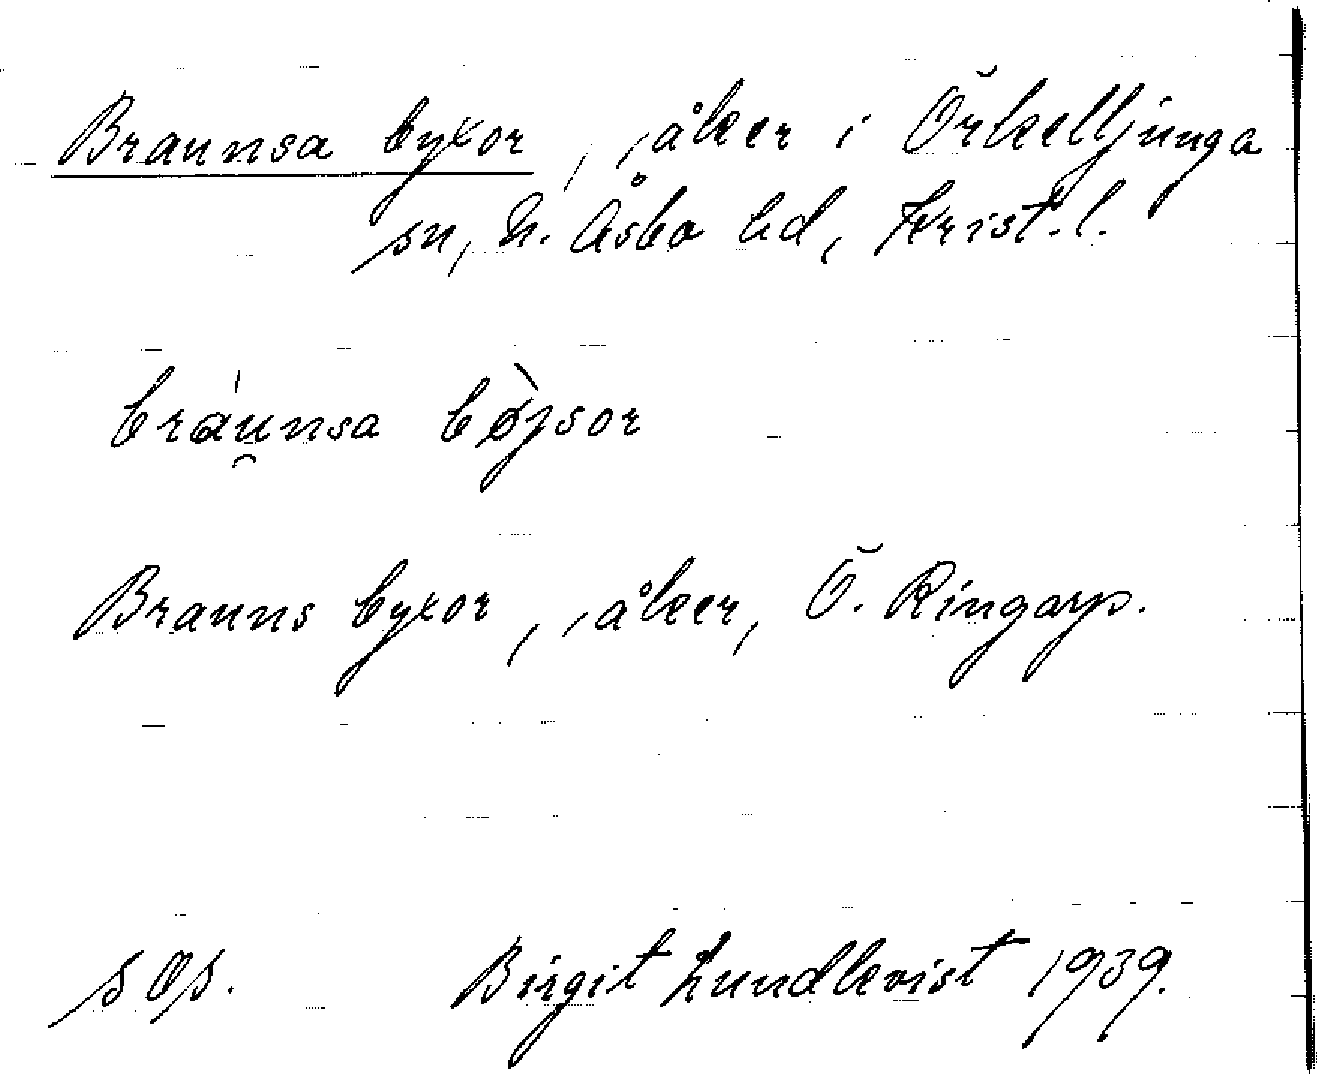 Braunsa byxor, åker i Örkelljunga
sn, N. Åsbo hd, Krist. l.
bráu̯nsa bø̀jsor
Brauns byxor, åker, Ö. Ringarp.
s Os.
Birgit Lundkvist 1939.